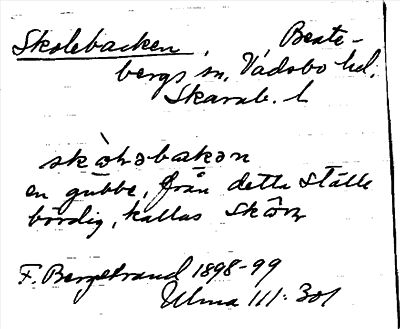 Skolebacken, Beate-
bergs sn, Vadsbo hd,
Skarab. l
skὼləbakən
en gubbe, från detta ställe
bördig, kallas Skôrn
F. Bergstrand 1898-99
Ulma 111:301